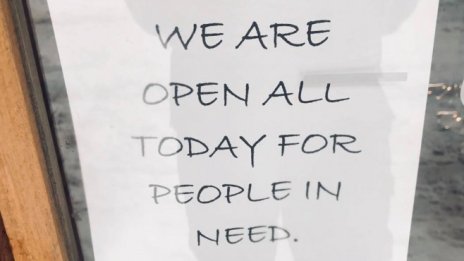 WE ARE
OPEN ALL
TODAY FOR
PEOPLE IN
NEED.